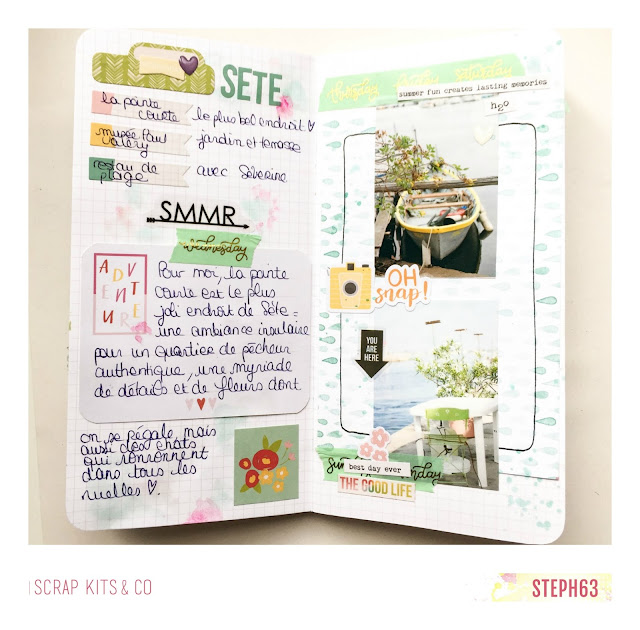 SETE
la pointe
courte
le plus bel endroit
musée Paul
Valéry
jardin et terrasse
restau de
plage
avec Séverine
SMMR
wednesday
ADVENTURE
Pour moi, la pointe
courte est le plus
joli endroit de Sète =
une ambiance insulaire
pour un quartier de pêcheur
authentique, une myriade
de détails et de fleurs dont
on se régale mais
aussi des chats
qui ronronnent
dans tous les
ruelles
thursday friday saturday
summer fun creates lasting memories
h2o
OH
snap!
YOU
ARE
HERE
best day ever
THE GOOD LIFE
SCRAP KITS & CO
STEPH63